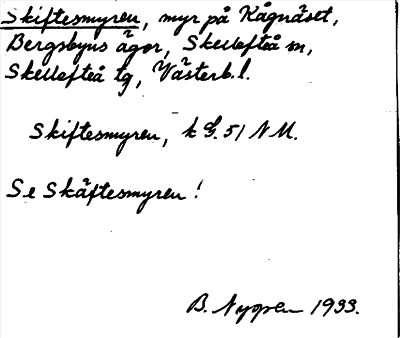 Skiftesmyren, myr på Kågnäset,
Bergsbyns ägor, Skellefteå m,
Skellefteå tg, Västerb.l.
Skiftesmyren, k G. 51 N M.
Se Skäftesmyren!
B. Nygren 1933.